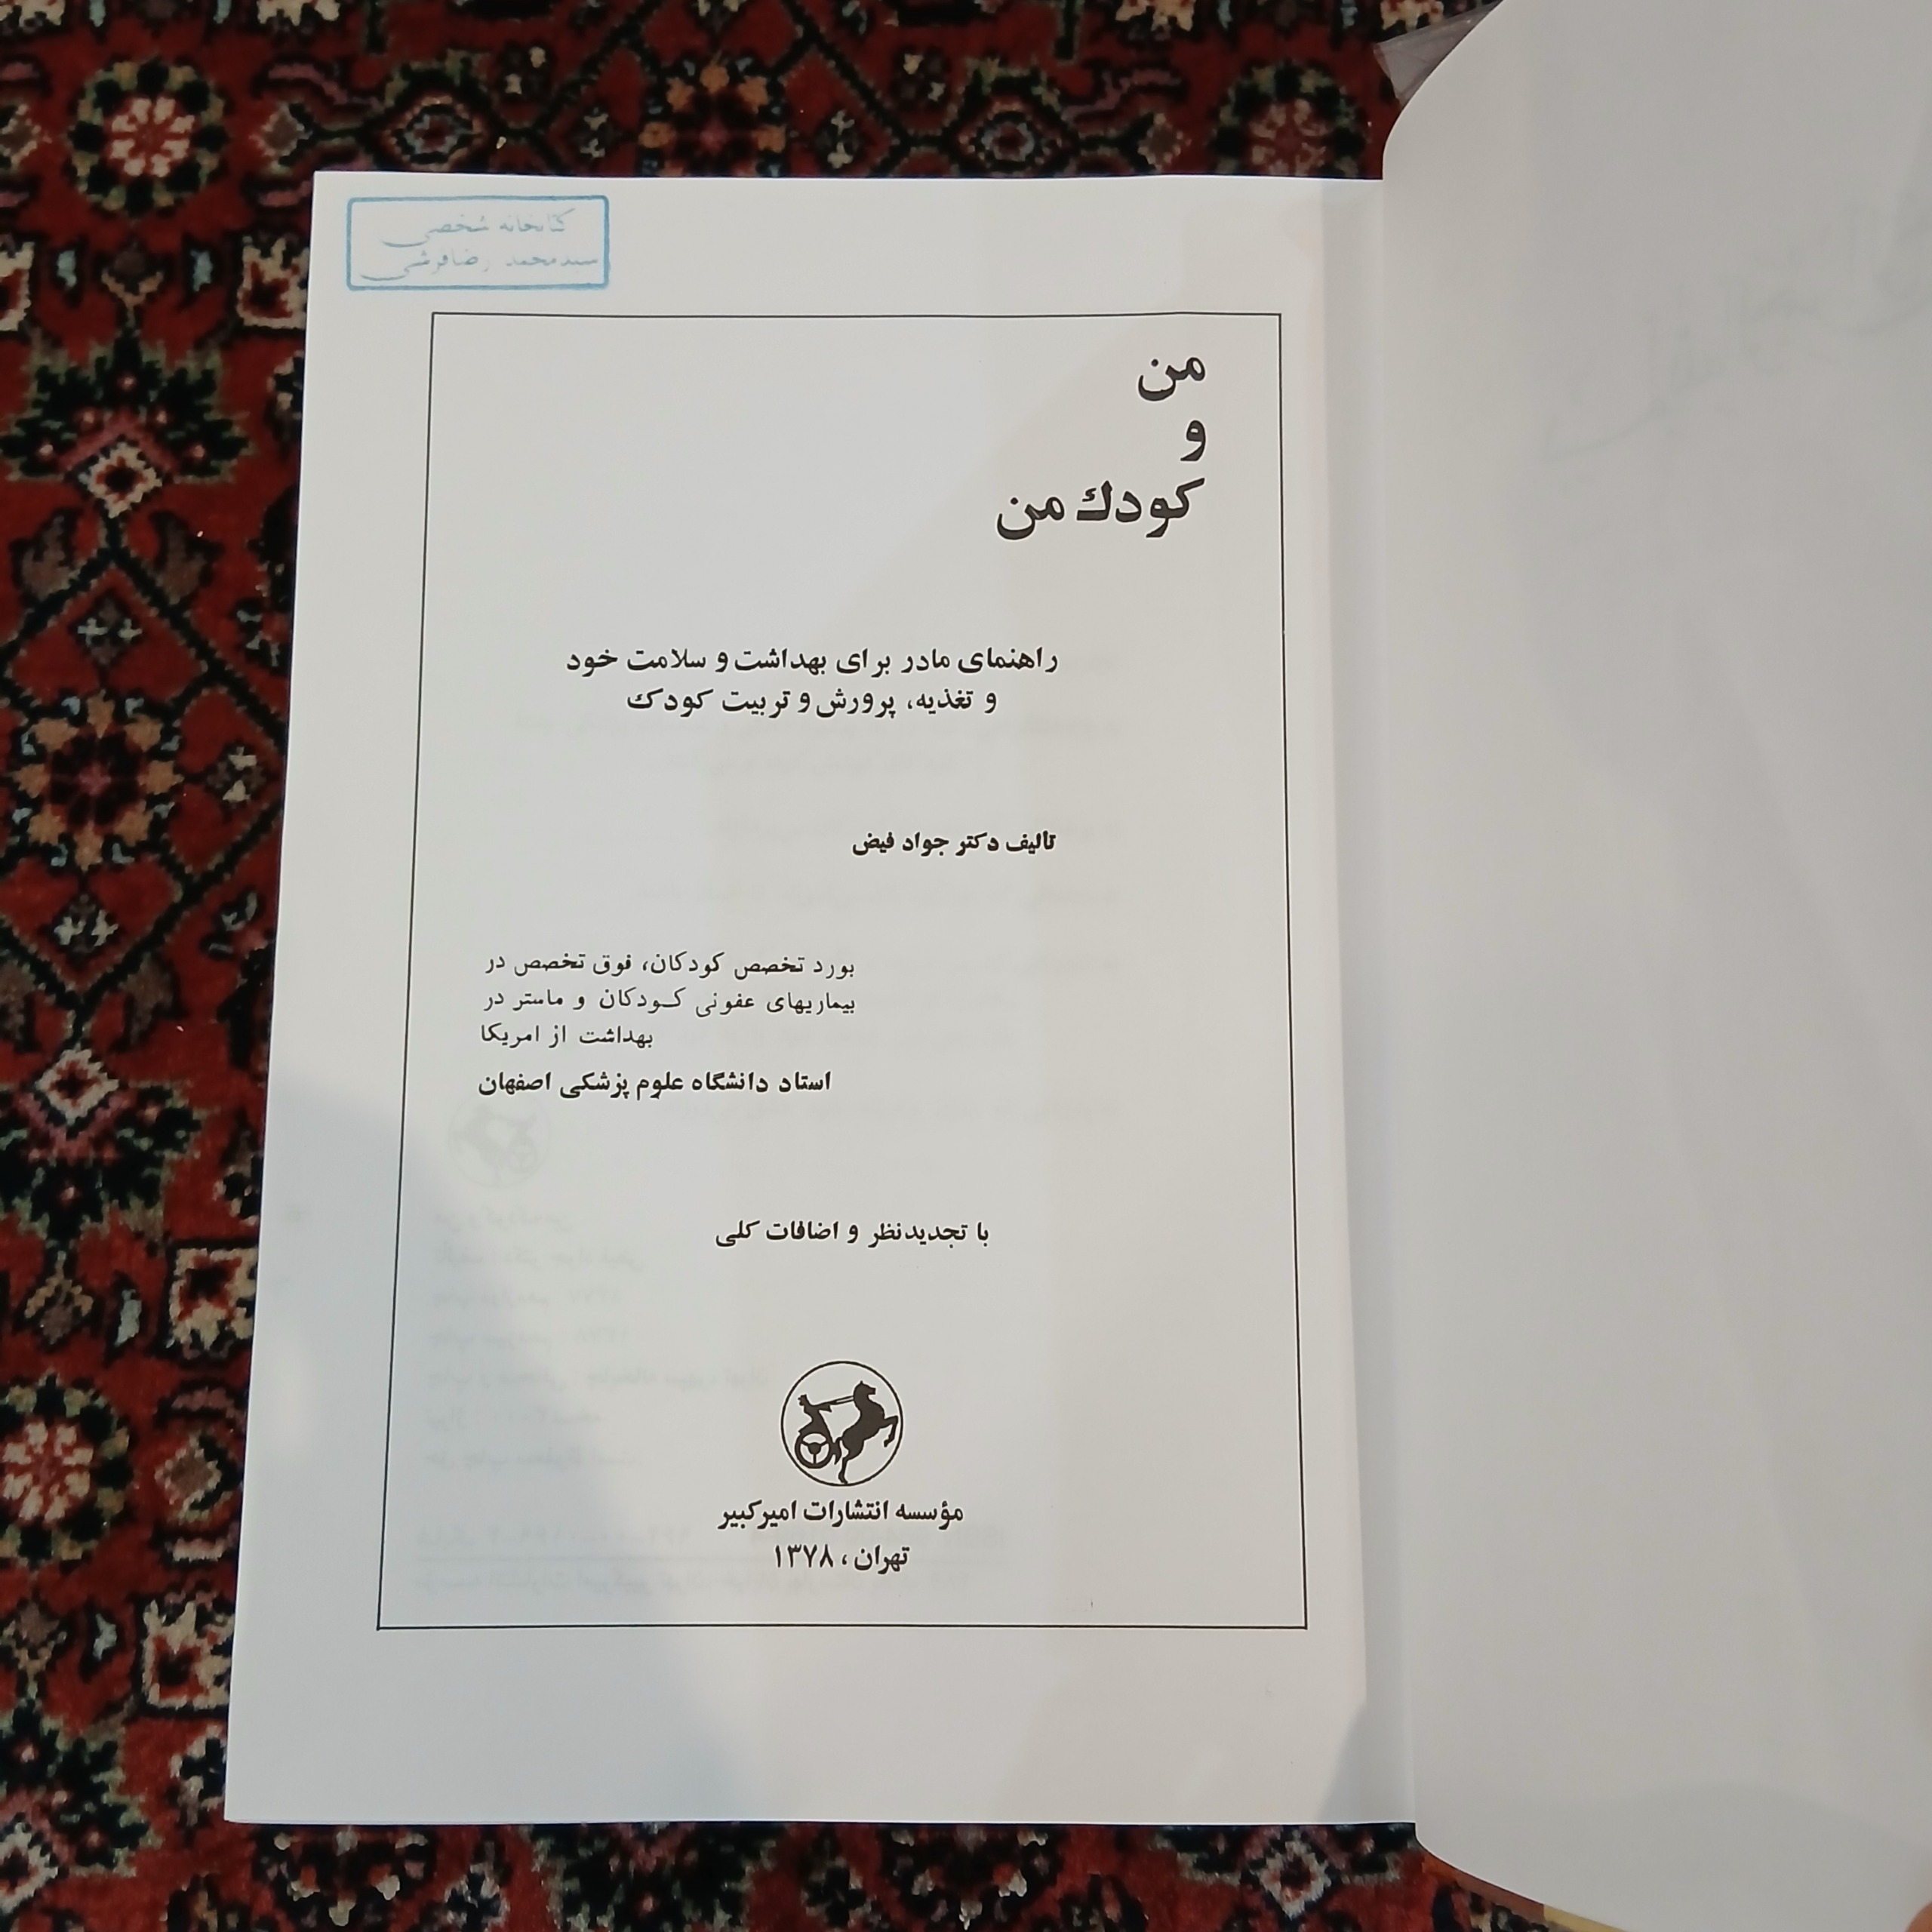 کتابخانه شخصی
سیدمحمد رضا قرشی
من
و
کودك من
راهنمای مادر برای بهداشت و سلامت خود
و تغذیه، پرورش و تربیت کودک
تالیف دکتر جواد فیض
بورد تخصص کودکان، فوق تخصص در
بیماریهای عفونی کودکان و ماستر در
بهداشت از امریکا
استاد دانشگاه علوم پزشکی اصفهان
با تجدیدنظر و اضافات کلی
مؤسسه انتشارات امیرکبیر
تهران، ۱۳۷۸